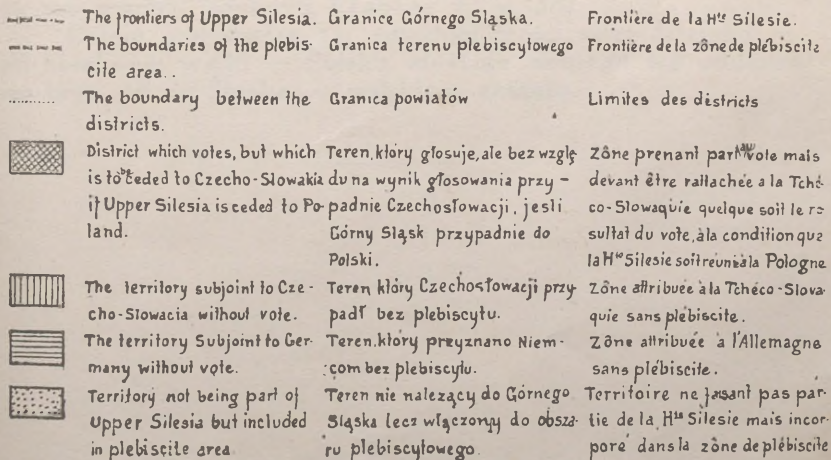 The frontiers of Upper Silesia.
The boundaries of the plebis-
cite area..
The boundary between the
districts.
District which votes, but which
is to be ceded to Czecho-Slowakia
if Upper Silesia is ceded to Po-
land.
The territory subjoint to Cze-
cho-Slowacia without vote.
The territory Subjoint to Ger-
many without vote.
Territory not being part of
Upper Silesia but included
in plebiscite area
Granice Górnego Sląska.
Granica terenu plebiscytowego
Granica powiatów
Teren, który głosuje, ale bez wzglę
du na wynik głosowania przy-
padnie Czechosłowacji, jesli
Górny Sląsk przypadnie do
Polski.
Teren który Czechosłowacji przy-
padł bez plebiscytu.
Teren, który przyznano Niem-
com bez plebiscytu.
Teren nie nalezący do Górnego
Sląska lecz włączony do obsza-
ru plebiscytowego.
Frontière de la Hte Silesie.
Frontière de la zône de plébiscite
Limites des districts
Zône prenant part au vote mais
devant être rattachée a la Tché-
co-Slowaquie quelque soit le re
sultat du vote, à la condition que
la Hte Silesie soit reunie à la Pologne
Zône attribuée à la Tchéco-Slova-
quie sans plébiscite.
Zône attribuée à l'Allemagne
sans plébiscite.
Territoire ne faisant pas par-
tie de la Hte Silesie mais incor-
poré dans la zône de plébiscite